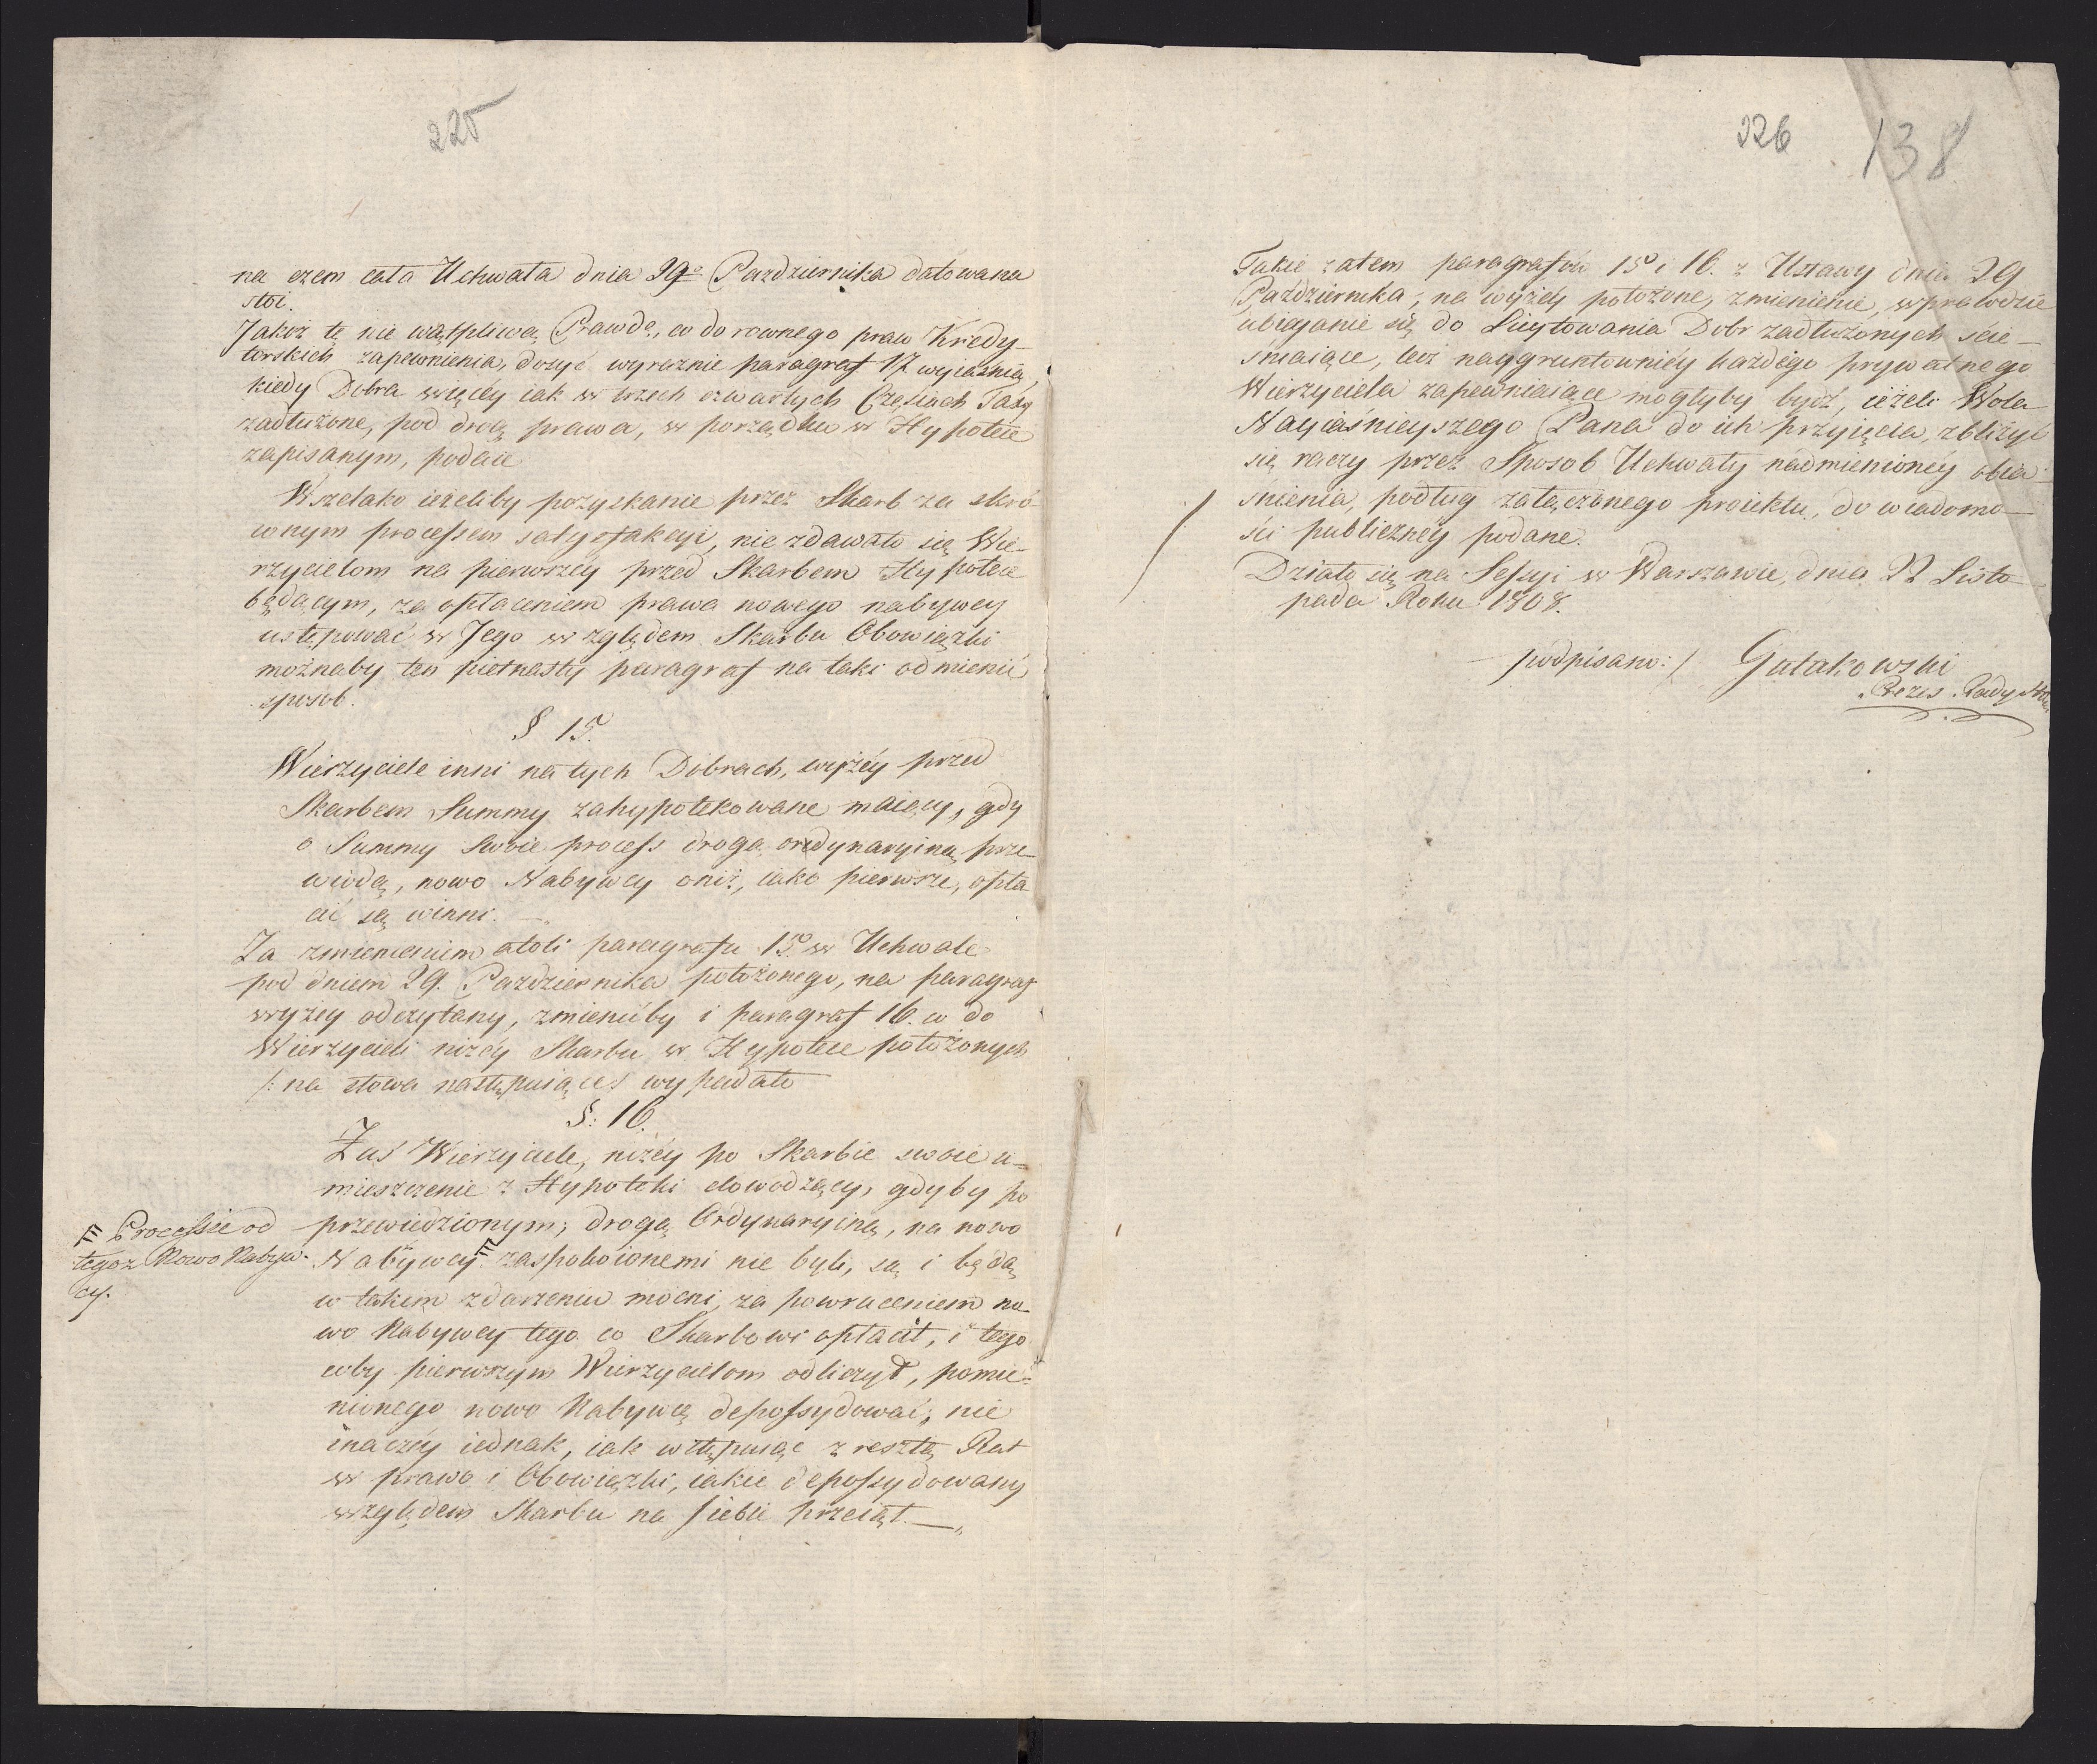 225
na czem cała Uchwała dnia 29º Pazdziernika datowana
stoi.
Jakoż tę nie wątpliwą Prawdę, co do rownego praw Kredy-
torskich zapewnienia, dosyć wyraznie paragraf 17 wyiaśnia,
kiedy Dobra więcéy iak w trzech czwartych Częściach Taxy
zadłużone, pod drogę prawa, w porządku w Hypotece
zapisanym, podaie
Wszelako ieżeliby pozyskanie przez Skarb za skró-
conym processem satysfakcyi, nie zdawało się Wie-
rzycielom na pierwszéy przed Skarbem Hypotece
będącym, za opłaceniem prawa nowego nabywcy
ustępować w Jego względem Skarbu Obowiązki
możnaby ten pietnasty paragraf na taki odmienić
sposob.
§ 15.
Wierzyciele inni na tych Dobrach, wyżéy przed
Skarbem Summy zahypotekowane maiący, gdy
o Summy swoie process drogą ordynaryiną prze-
wiodą, nowo Nabywcy oniż, iako pierwsze, opła
cić są winni.
Za zmienieniem atoli paragrafu 15 w Uchwale
pod dniem 29. Pazdziernika położonego, na paragraf
wyżey odczytany, zmieniłby i paragraf 16. co do
Wierzycieli niżéy Skarbu w Hypotece położonych
/: na słowa następuiące/ wypadało
§: 16.
Zaś Wierzyciele, niżéy po Skarbie swoie u-
mieszczenie z Hypoteki dowodzący, gdyby po
przewiedzionym, drogą Ordynaryiną, na nowo
Nabywcy # zaspokoionemi nie byli, są i będą
# Processie od
tegoż Nowo Nabyw-
cy.
w takiem zdarzeniu mocni, za powróceniem no-
wo Nabywcy tego co Skarbowi opłacił, i tego
coby pierwszym Wierzycielom odliczył, pomie-
nionego nowo Nabywcę depossydować, nie
inaczéy iednak, iak wstępuiąc z resztą Rat
w prawa i Obowiązki, iakie depossydowany
względem Skarbu na siebie przeiął.
226 138
Takie zatem paragrafów 15 i 16. z Ustawy dnia 29
Października, na wyżéy położone, zmienienie, wprawdzie
ubieganie się do Licytowania Dobr zadłużonych ście-
śniaiące, lecz naygruntowniéy każdego prywatnego
Wierzyciela zapewniaiące mogłyby bydź, ieżeli Wola
Nayiaśnieyszego Pana do ich przyięcia, zbliżyć
się raczy przez Sposob Uchwały nadmienionéy obia-
śnienia, podług załączonego proiektu, do wiadomo-
ści publicznéy podane.
Działo się na Sessyi w Warszawie, dnia 22 Listo-
pada Roku 1808.
podpisano:/ Gutakowski
Prezes Rady Stanu